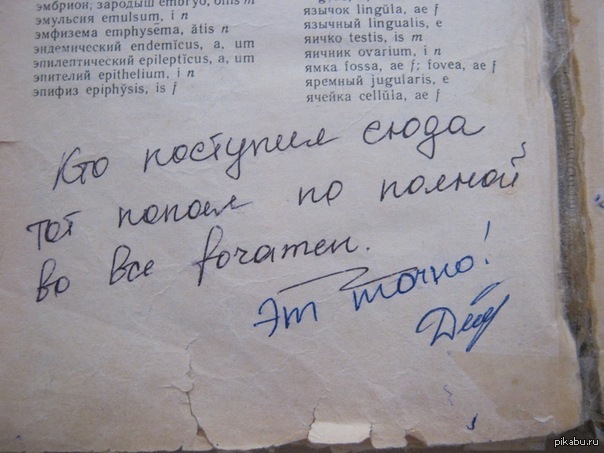 эмбрион; зародыш embryo, onis m
эмульсия emulsum, i n
эмфизема emphysēma, ătis n
эндемический endemĭcus, a, um
эпилептический epileptĭcus, a, um
эпителий epithelium, i n
эпифиз epiphy̆sis, is f
язычок lingŭla, ae f
язычный lingualis, e
яичко testis, is m
яичник ovarium, i n
ямка fossa, ae f; fovea, ae f
яремный jugularis, e
ячейка cellŭla, ae f
Кто поступил сюда
тот попал по полной
во все
Эт точно!
pikabu.ru